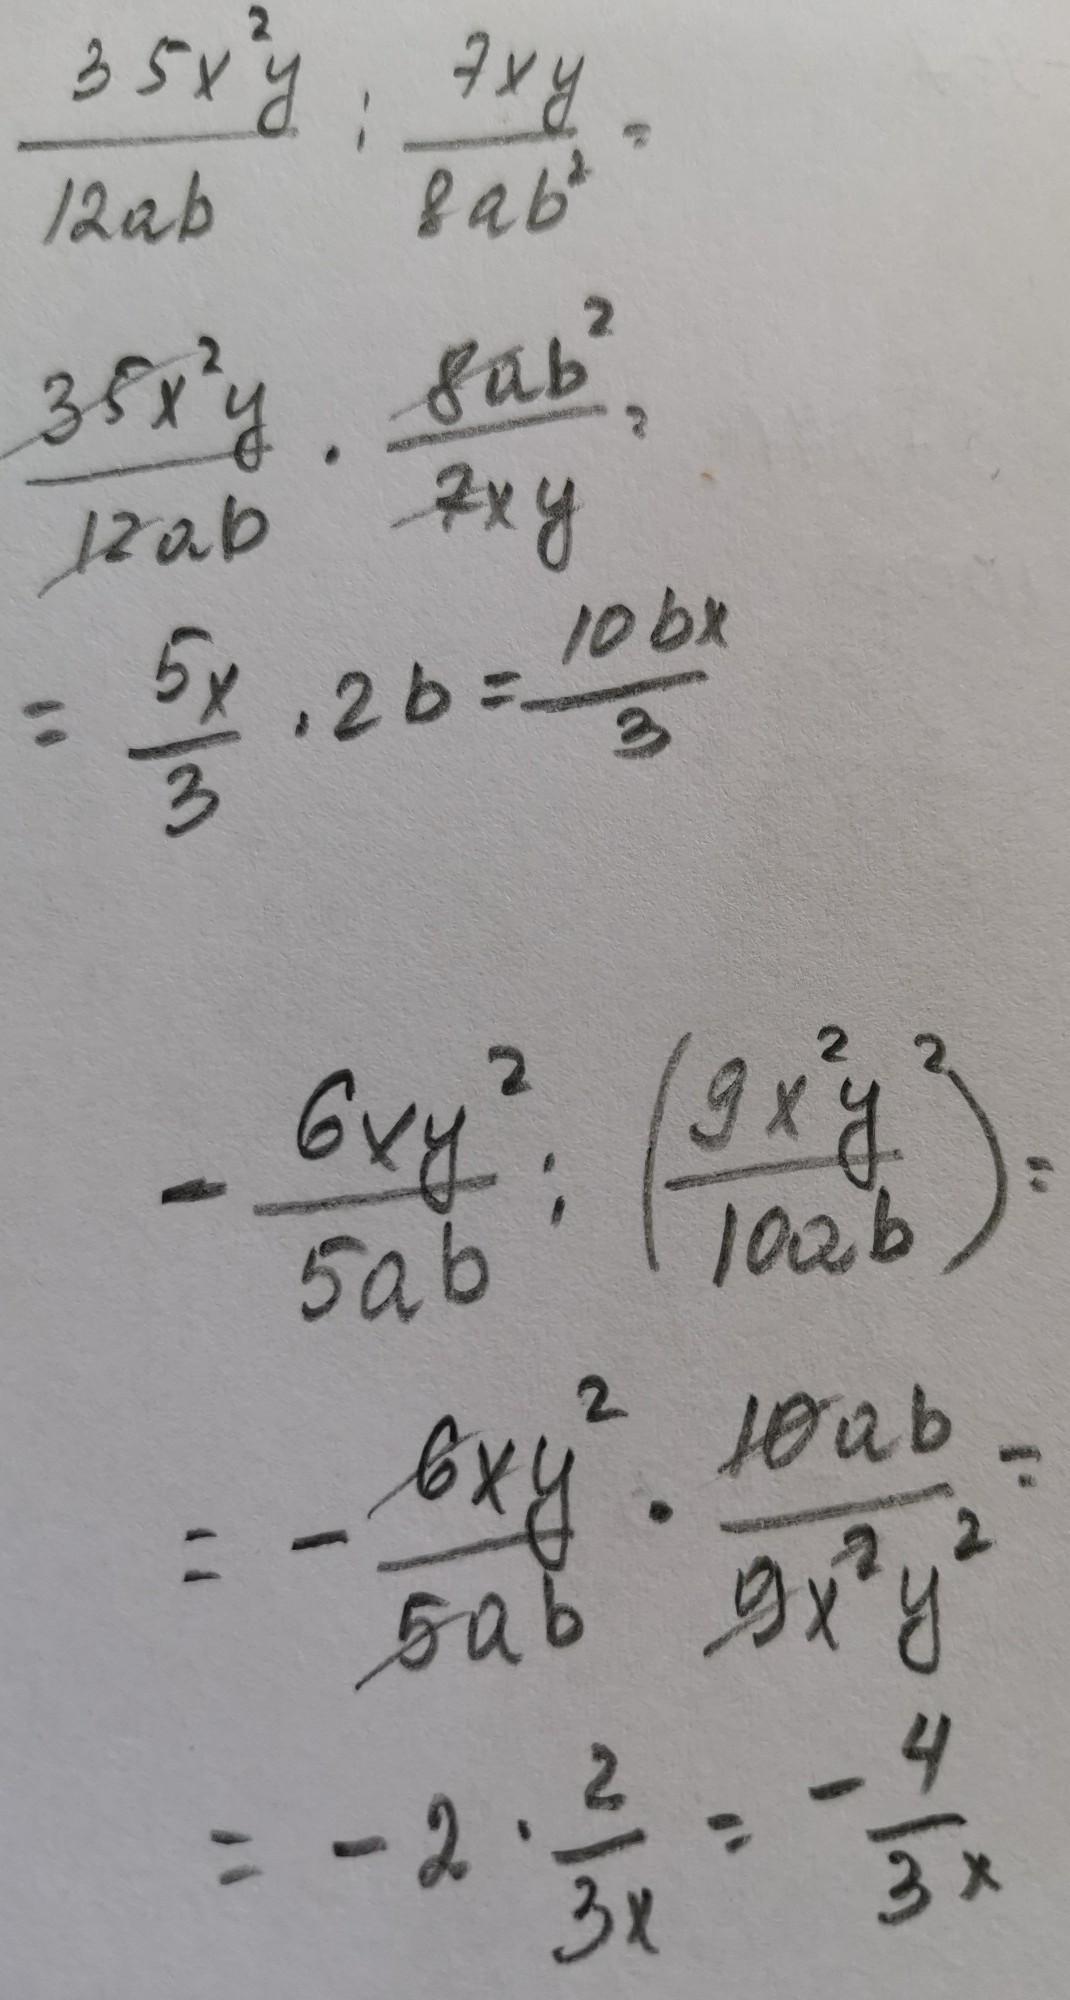 35x²y/12ab : 7xy/8ab² =
35x²y/12ab · 8ab²/7xy =
= 5x/3 · 2b = 10bx/3
- 6xy²/5ab : (9x²y²/10ab) =
= - 6xy²/5ab · 10ab/9x²y² =
= - 2 · 2/3x = - 4/3x